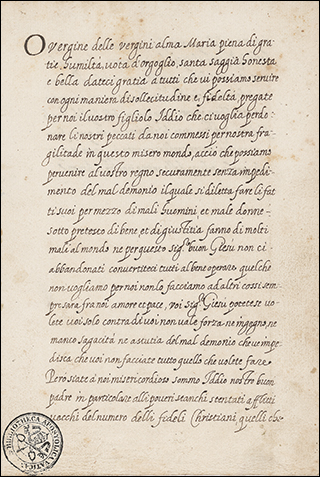 O vergine delle vergini alma Maria piena di gra-
tie, humiltà, vota d'orgoglio, santa saggià honesta
e bella dateci gratia à tutti che vi possiamo servire
con ogni maniera di sollecitudine e fideltà, pregate
per noi il vostro figliolo Iddio che ci voglia perdo-
nare li nostri peccati da noi commessi per nostra fra-
gilitade in questo misero mondo, acciò che possiamo
pervenire al vostro regno securamente senza impedi-
mento del mal demonio il quale si diletta fare li fat-
ti suoi per mezzo di mali huomini, et male donne
sotto pretesco di bene et di giustitia fanno di molti
mali al mondo ne per questo sig.r buon Giesù non ci
abbandonati convertiteci tutti al bene operare quel che
non vogliamo per noi non lo facciamo ad altri cossi sem-
pre sarà fra noi amore et pace, voi sig.r Giesù potete se vo-
lete voi solo contra di voi non vale forza ne ingegno, ne
manco sagacità ne astutia del mal demonio che impe-
disca che voi non facciate tutto quello che volete fare
Pero siate à noi misericordioso sommo Iddio nostro buon
padre in particolare alli poveri stanchi stentati afflitti
vecchi del numero delli fideli Christiani quelli che
BIBLIOTHECA APOSTOLICA VATICANA